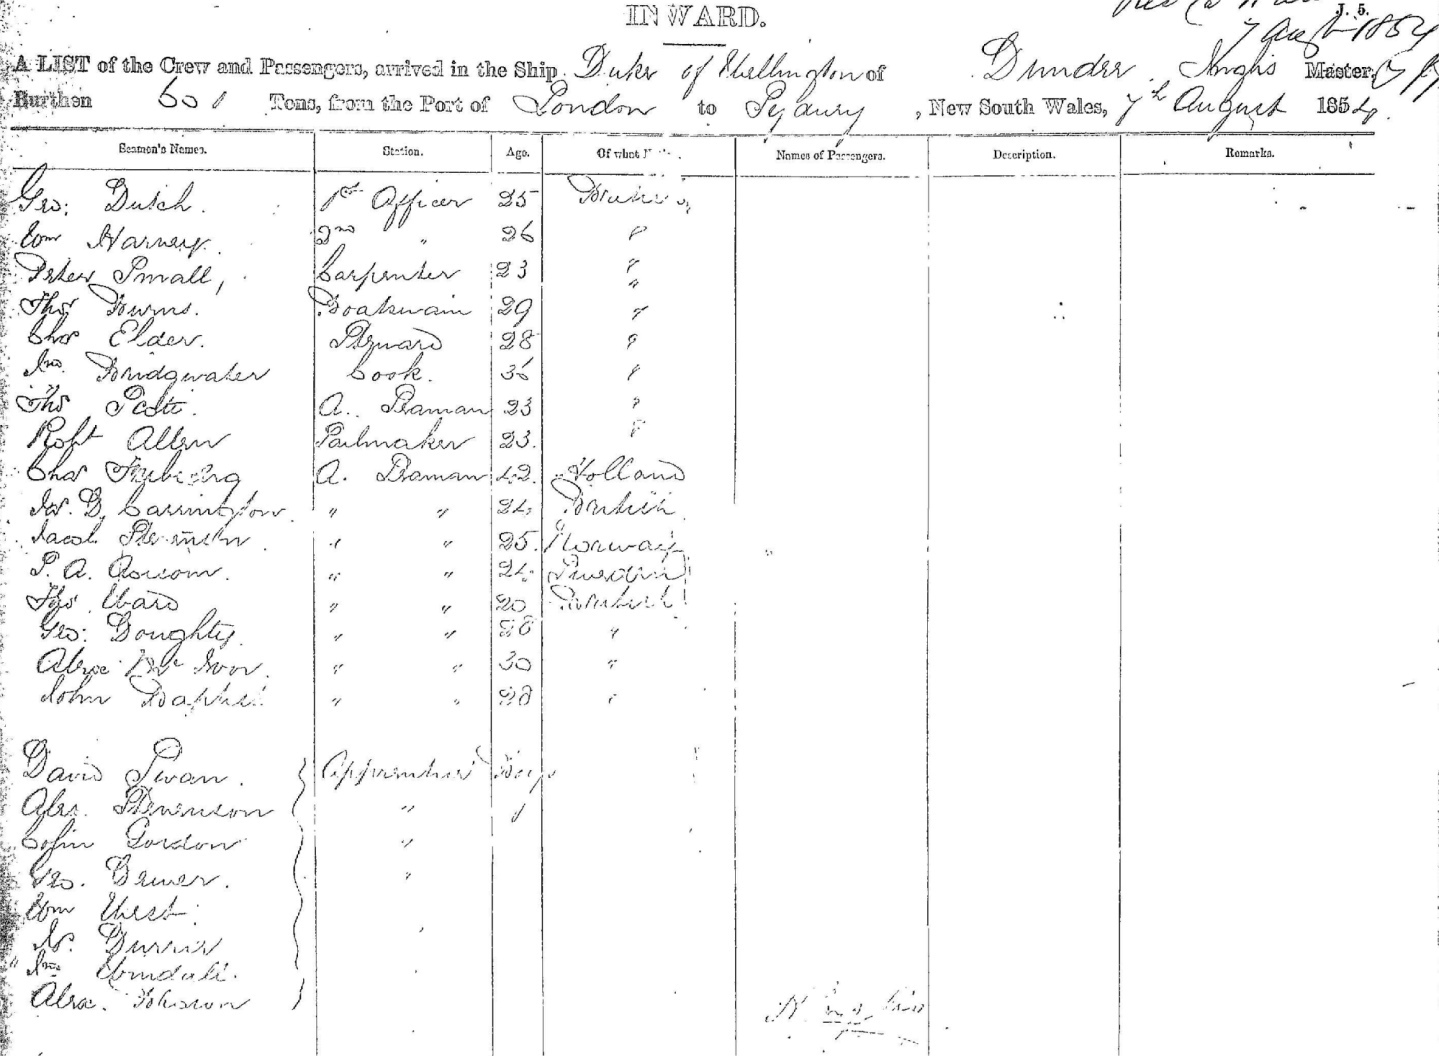 IN WARD.
J. 5.
7 Augt 1854
A LIST of the Crew and Passengers, arrived in the Ship Duke of Wellington of Dundee, Inglis Master,
Burthen 601 Tons, from the Port of London to Sydney, New South Wales, 7th August 1854.
Seamen's Names. Station. Age. Of what Names of Passengers. Description. Remarks.
Geo: Dutch. 1st Officer 25 British
Wm Harvey. 2nd " 26 "
Peter Small, Carpenter 23 "
Thos Burns. Boatswain 29 "
Chas Elder. Steward 28 "
Jno. Bridgwater Cook. "
Thos A. Seaman 23 "
Robt Allen Sailmaker 23. "
Chas A. Seaman 42. Holland
D. Carrington " " 24. British
Jacob " " 25. Norway
P. A. " " 24.
Thos Ward " " 20 British
Geo: Doughty. " " 28 "
Alexr Mc Ivor. " " 30 "
John Baptist " " 28 "
David Swan. Apprentice Boys
Alex. Stevenson " "
Colin Gordon "
Geo. "
Wm West.
Jas. Durrie
Jno.
Alexr. Johnson